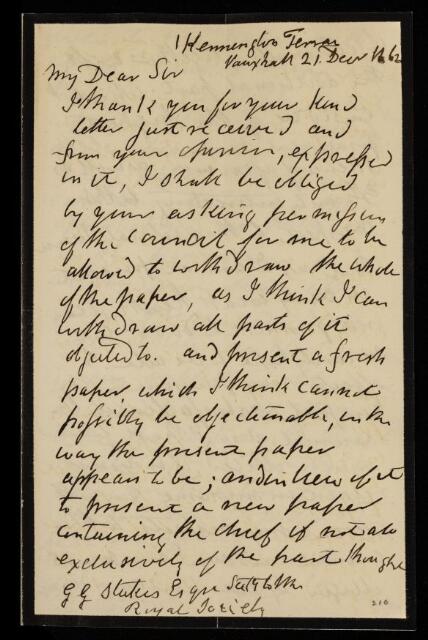 1 Kennington Terrace
Vauxhall 21 Decr 1862
My Dear Sir
I thank you for your kind
letter just received and
from your opinion, expressed
in it, I shall be obliged
by your asking permission
of the Council for me to be
allowed to withdraw the whole
of the paper, as I think I can
withdraw all parts of it
objected to. and present a fresh
paper, which I think cannot
possibly be objectionable, in the
way the present paper
appears to be; and in lieu of it
to present a new paper
containing the chief if not all
exclusively of the part thought
G G Stokes Esqre Secy to the
Royal Society
210